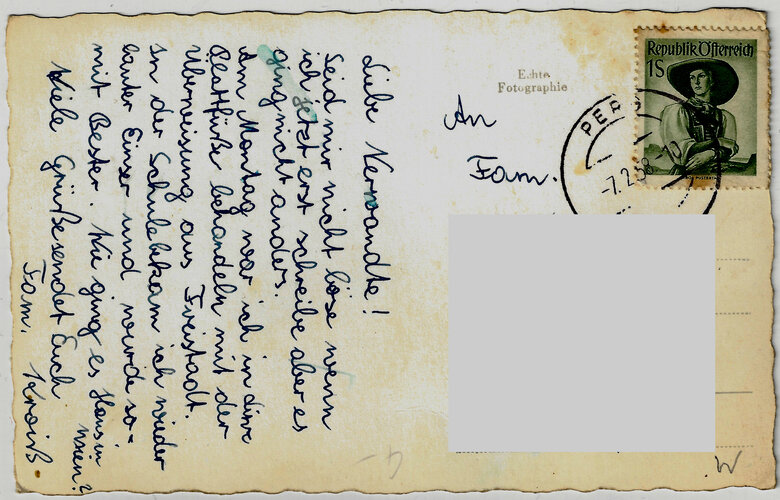 Liebe Verwandte!
Seid mir nicht böse wenn
ich jetzt erst schreibe aber es
ging nicht anders.
Am Montag war ich in Linz
Plattfüße behandeln mit der
Überweisung aus Freistadt.
In der Schule bekam ich wieder
lauter Einser und wurde so-
mit Bester. Wie ging es Hans in
Wien?
Viele Grüße sendet Euch
Fam. Kroiß
Echte
Fotographie
An
Fam.
Republik Österreich
1S
PERG
-7.2.58-10
W